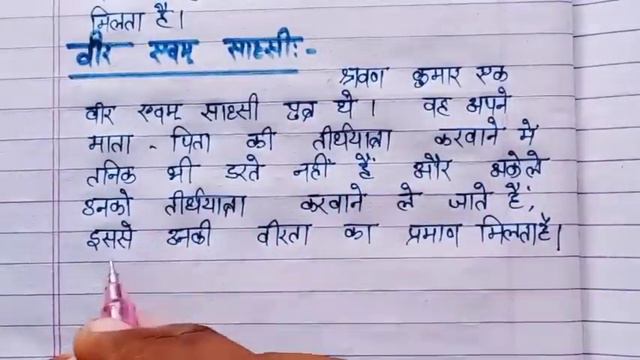 मिलता है।
वीर एवम् साहसी:-
श्रवण कुमार एक
वीर एवम् साहसी पुत्र थे। वह अपने
माता - पिता की तीर्थयात्रा करवाने में
तनिक भी डरते नहीं हैं और अकेले
उनको तीर्थयात्रा करवाने ले जाते हैं,
इससे उनकी वीरता का प्रमाण मिलता है।